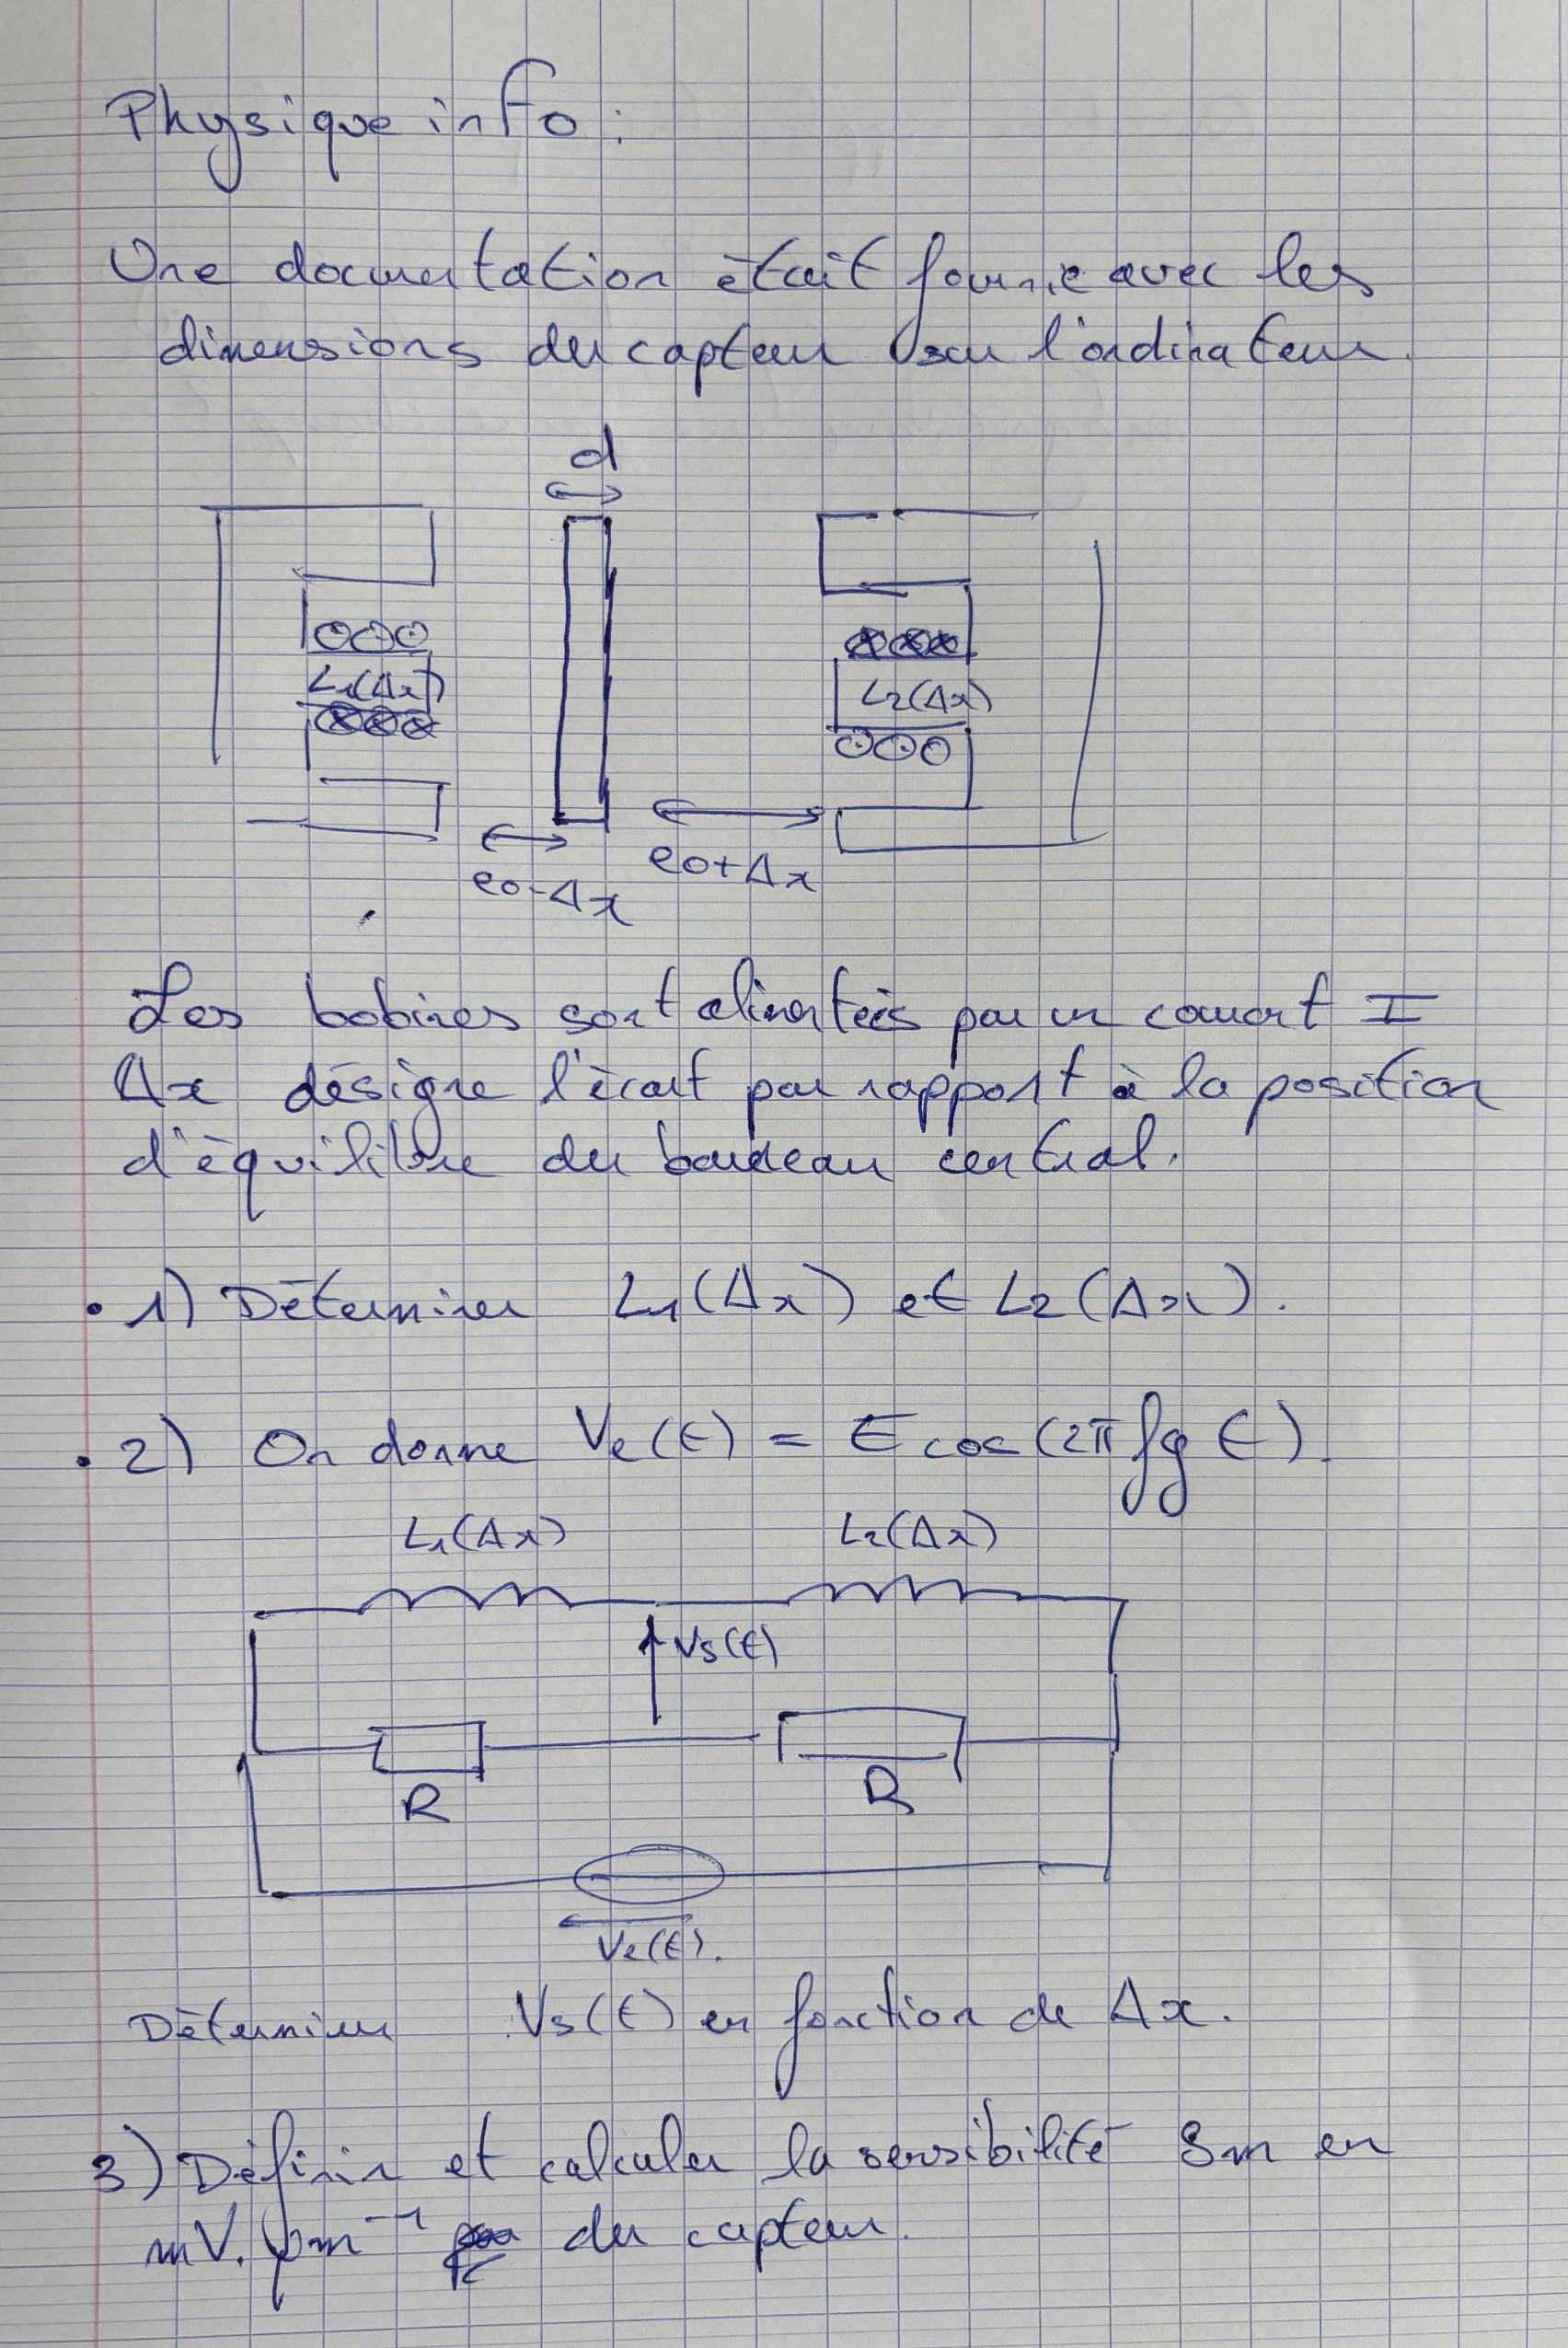 Physique info :
Une documentation était fournie avec les
dimensions du capteur sur l'ordinateur.
d
L1(Δx)
L2(Δx)
e0-Δx
e0+Δx
Les bobines sont alimentées par un courant I
Δx désigne l'écart par rapport à la position
d'équilibre du barreau central.
• 1) Déterminer L1(Δx) et L2(Δx).
• 2) On donne Ve(t) = E cos(2π fg t).
L1(Δx)
L2(Δx)
Vs(t)
R
R
Ve(t).
Déterminer Vs(t) en fonction de Δx.
3) Définir et calculer la sensibilité Sm en
mV.μm⁻¹ du capteur.